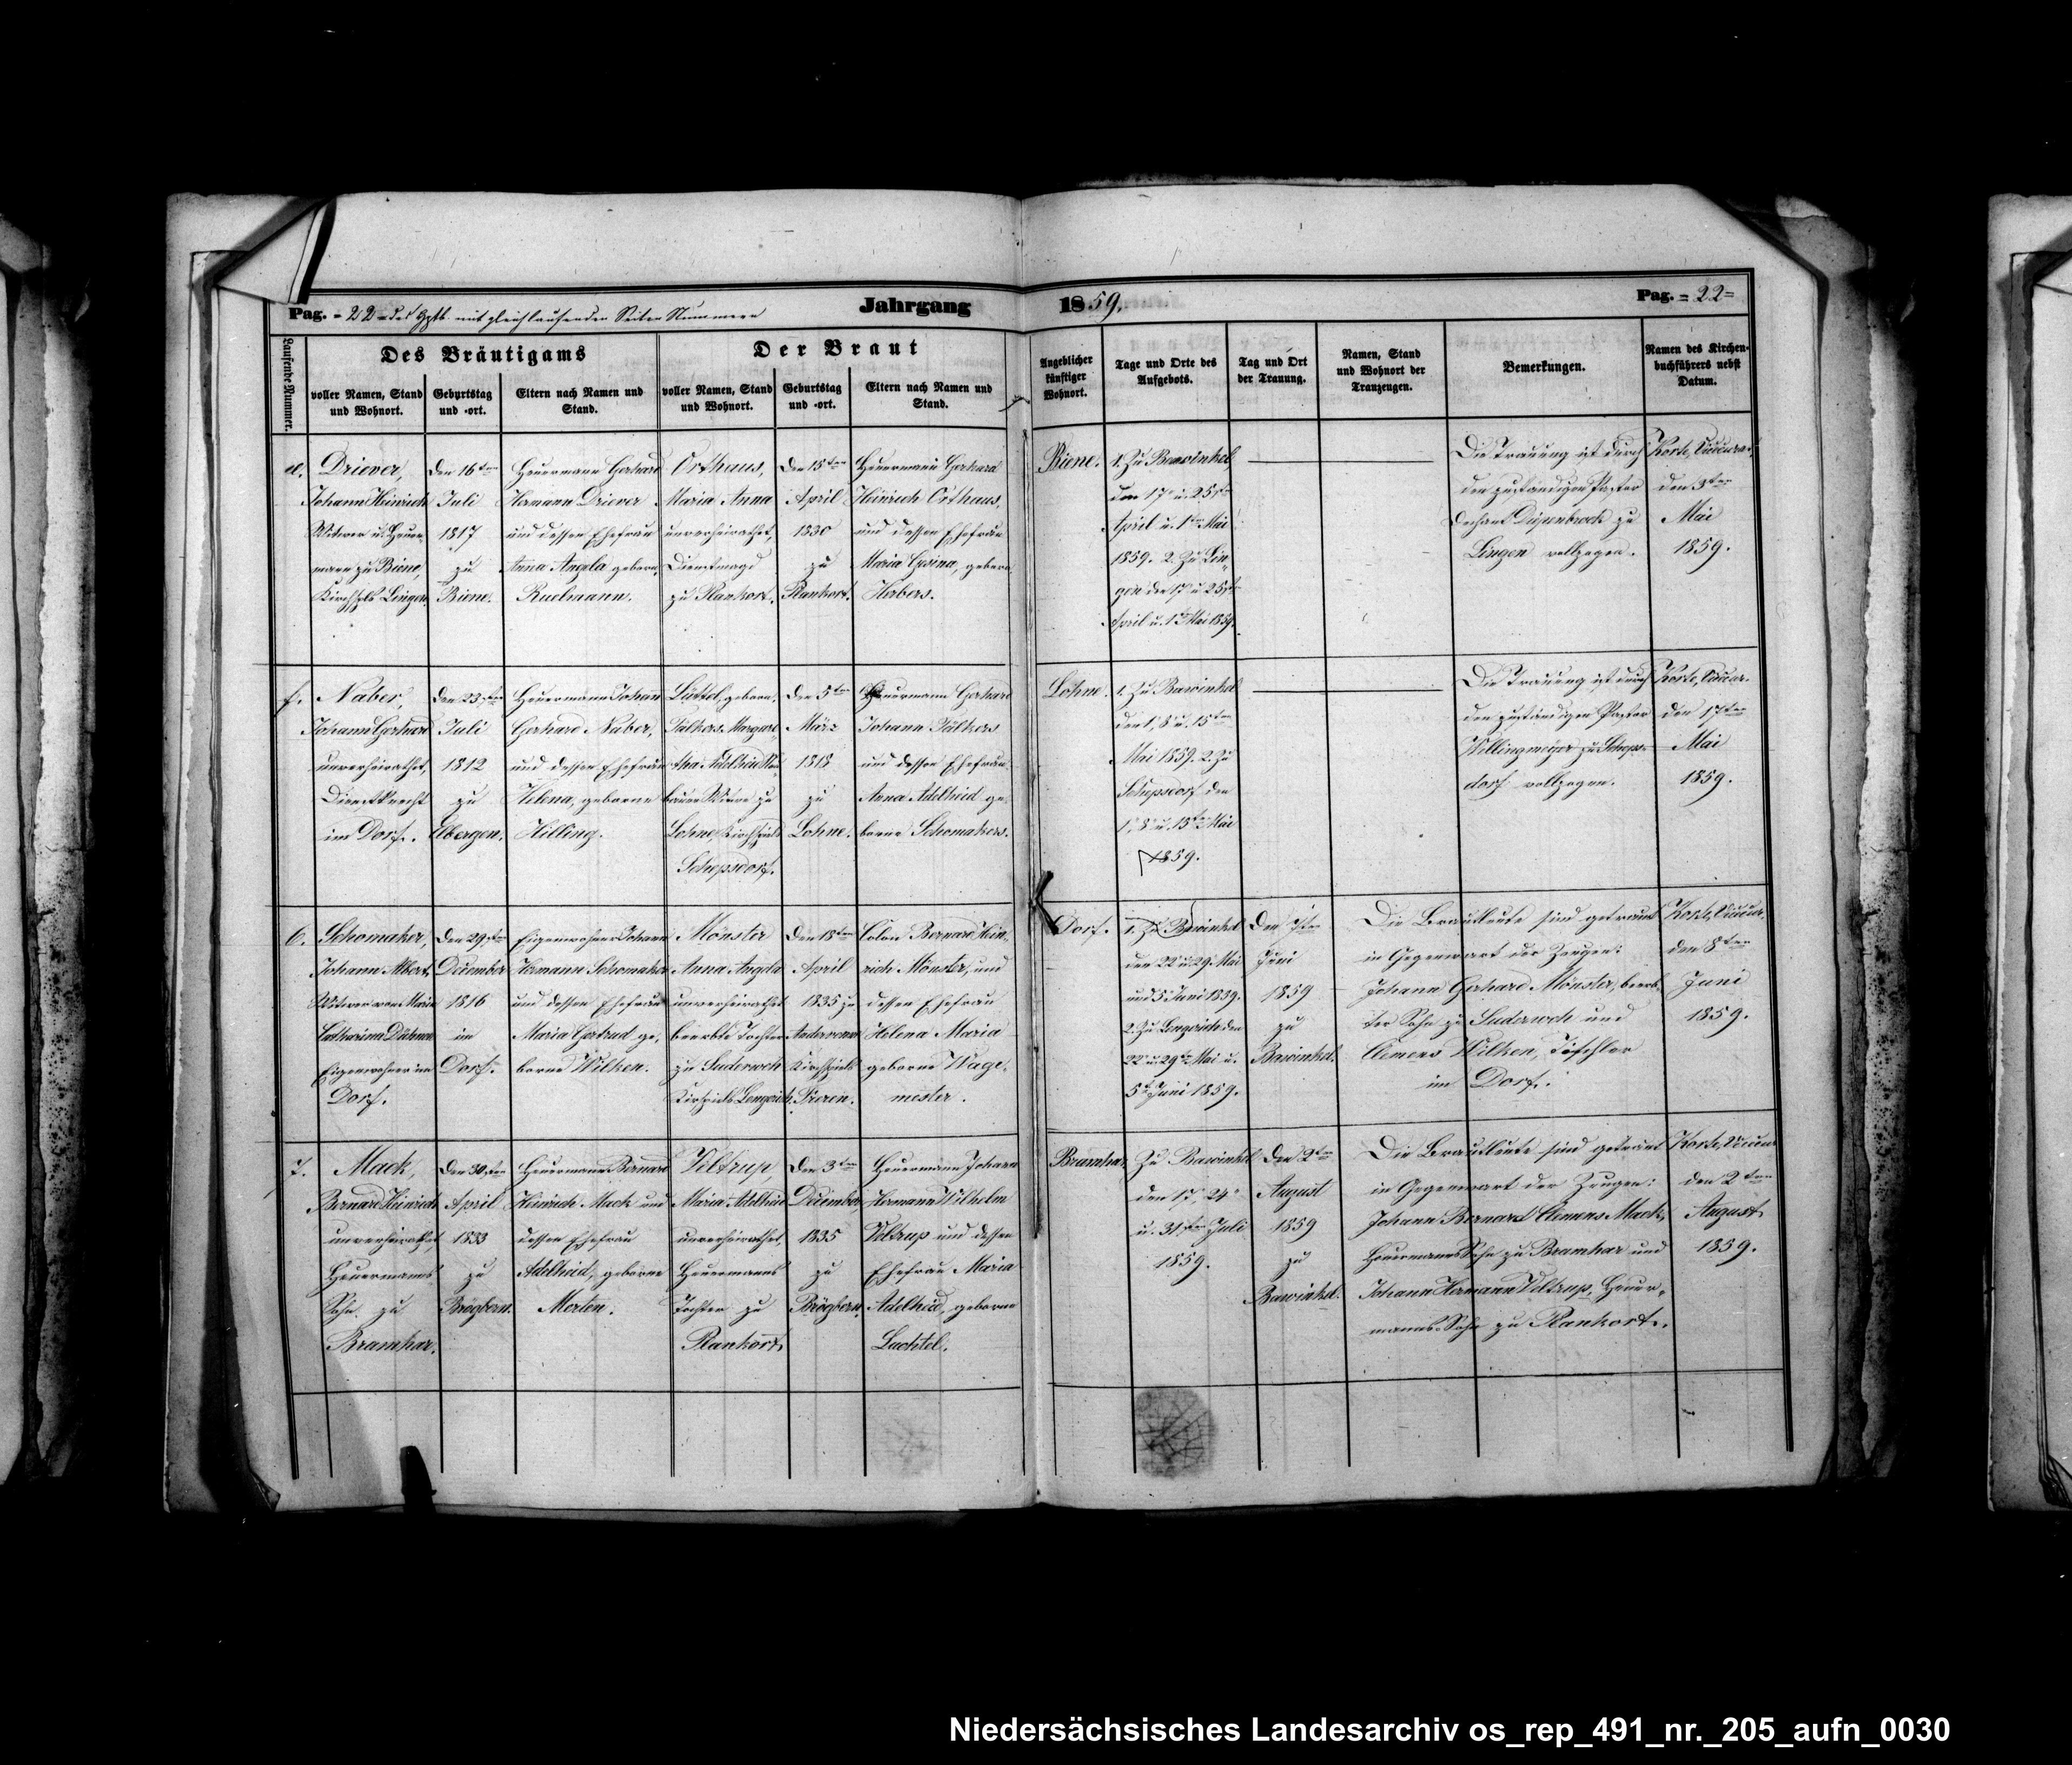 Pag. = 22 = des Hptb. mit gleichlaufenden Seiten Nummern
Jahrgang
1859.
Pag. = 22 =
Laufende Nummer.
Des Bräutigams
voller Namen, Stand
und Wohnort.
Geburtstag
und -ort.
Eltern nach Namen und
Stand.
Der Braut
voller Namen, Stand
und Wohnort.
Geburtstag
und -ort.
Eltern nach Namen und
Stand.
Angeblicher
künftiger
Wohnort.
Tage und Orte des
Aufgebots.
Tag und Ort
der Trauung.
Namen, Stand
und Wohnort der
Trauzeugen.
Bemerkungen.
Namen des Kirchen-
buchführers nebst
Datum.
e.
Driever,
Johann Heinrich
Witwer u. Heuer-
mann zu Biene,
Kirchspls Lingen.
den 16ten
Juli
1817
zu
Biene.
Heuermann Gerhard
Hermann Driever
und dessen Ehefrau
Anna Angela geborn.
Ruelmann.
Orthaus,
Maria Anna
unverheirathet,
Dienstmagd
zu Plankort.
den 15ten
April
1830
zu
Plankort.
Heuermann Gerhard
Heinrich Orthaus,
und dessen Ehefrau
Maria Gesina, geborn.
Herbers.
Biene.
1. Zu Bawinkel
den 17. u. 25ten
April u. 1ten Mai
1859. 2. Zu Lin-
gen den 17 u. 25ten
April u. 1ten Mai 1859.
Die Trauung ist durch
den zuständigen Pastor
Dechant Diepenbrock zu
Lingen vollzogen.
Korte, Vicecurat,
den 3ten
Mai
1859.
f.
Naber,
Johann Gerhard
unverheirathet,
Dienstknecht
im Dorf.
den 23sten
Juli
1812
zu
Elbergen.
Heuermann Johann
Gerhard Naber,
und dessen Ehefrau
Helena, geborne
Hilling.
Lüttel, geborn.
Margare-
tha Adelheid
Witwe zu
Lohne, Kirchspiels
Schepsdorf.
den 5ten
März
1818
zu
Lohne.
Heuermann Gerhard
Johann
und dessen Ehefrau
Anna Adelheid ge-
borne Schomakers.
Lohne.
1. Zu Bawinkel
den 1, 8 u. 15ten
Mai 1859. 2. Zu
Schepsdorf den
1, 8 u. 15ten Mai
1859.
Die Trauung ist durch
den zuständigen Pastor
zu Scheps-
dorf vollzogen.
Korte, Vicecur.
den 17ten
Mai
1859.
6.
Schomaker,
Johann Albert,
Witwer von Maria
Catharina
Eigenwohner im
Dorf.
den 29sten
December
1816
im
Dorf.
Eigenwohner Johann
Hermann Schomaker
und dessen Ehefrau
Maria Gertrud ge-
borne Wilken.
Mönster
Anna Angela
unverheirathet
beerbte Tochter
zu Suderweh
Kirspiels Lengerich.
den 18ten
April
1835 zu
Andervenne
Kirchspiels
Freren.
Colon Bernard Hein-
rich Mönster, und
dessen Ehefrau
Helena Maria
geborne Wage-
mester.
Dorf.
1. Zu Bawinkel
den 22 u. 29. Mai
und 5 Juni 1859.
2. Zu Lengerich den
22 u. 29ten Mai u.
5ten Juni 1859.
Den 7ten
Juni
1859
zu
Bawinkel.
Die Brautleute sind getraut
in Gegenwart der Zeugen:
Johann Gerhard Mönster, beerb-
ter Sohn zu Suderweh und
Clemens Wilken, Tischler
im Dorf.
Korte, Vicecur.
den 8ten
Juni
1859.
7.
Mack,
Bernard Heinrich
unverheirathet,
Heuermanns
Sohn zu
Bramhar.
den 30sten
April
1833
zu
Brögbern.
Heuermann Bernard
Heinrich Mack und
dessen Ehefrau
Adelheid, geborne
Merten.
Veltrup,
Maria Adelheid
unverheirathet,
Heuermanns
Tochter zu
Plankort.
den 3ten
December
1835
zu
Brögbern.
Heuermann Johann
Hermann Wilhelm
Veltrup und dessen
Ehefrau Maria
Adelheid, geborne
Lachtel.
Bramhar.
Zu Bawinkel
den 17, 24
u. 31sten Juli
1859.
Den 2ten
August
1859
zu
Bawinkel.
Die Brautleute sind getraut
in Gegenwart der Zeugen:
Johann Bernard Clemens Mack,
Heuermanns Sohn zu Bramhar und
Johann Hermann Veltrup, Heuer-
manns Sohn zu Plankort.
Korte, Vicecur.
den 2ten
August
1859.
Niedersächsisches Landesarchiv os_rep_491_nr._205_aufn_0030